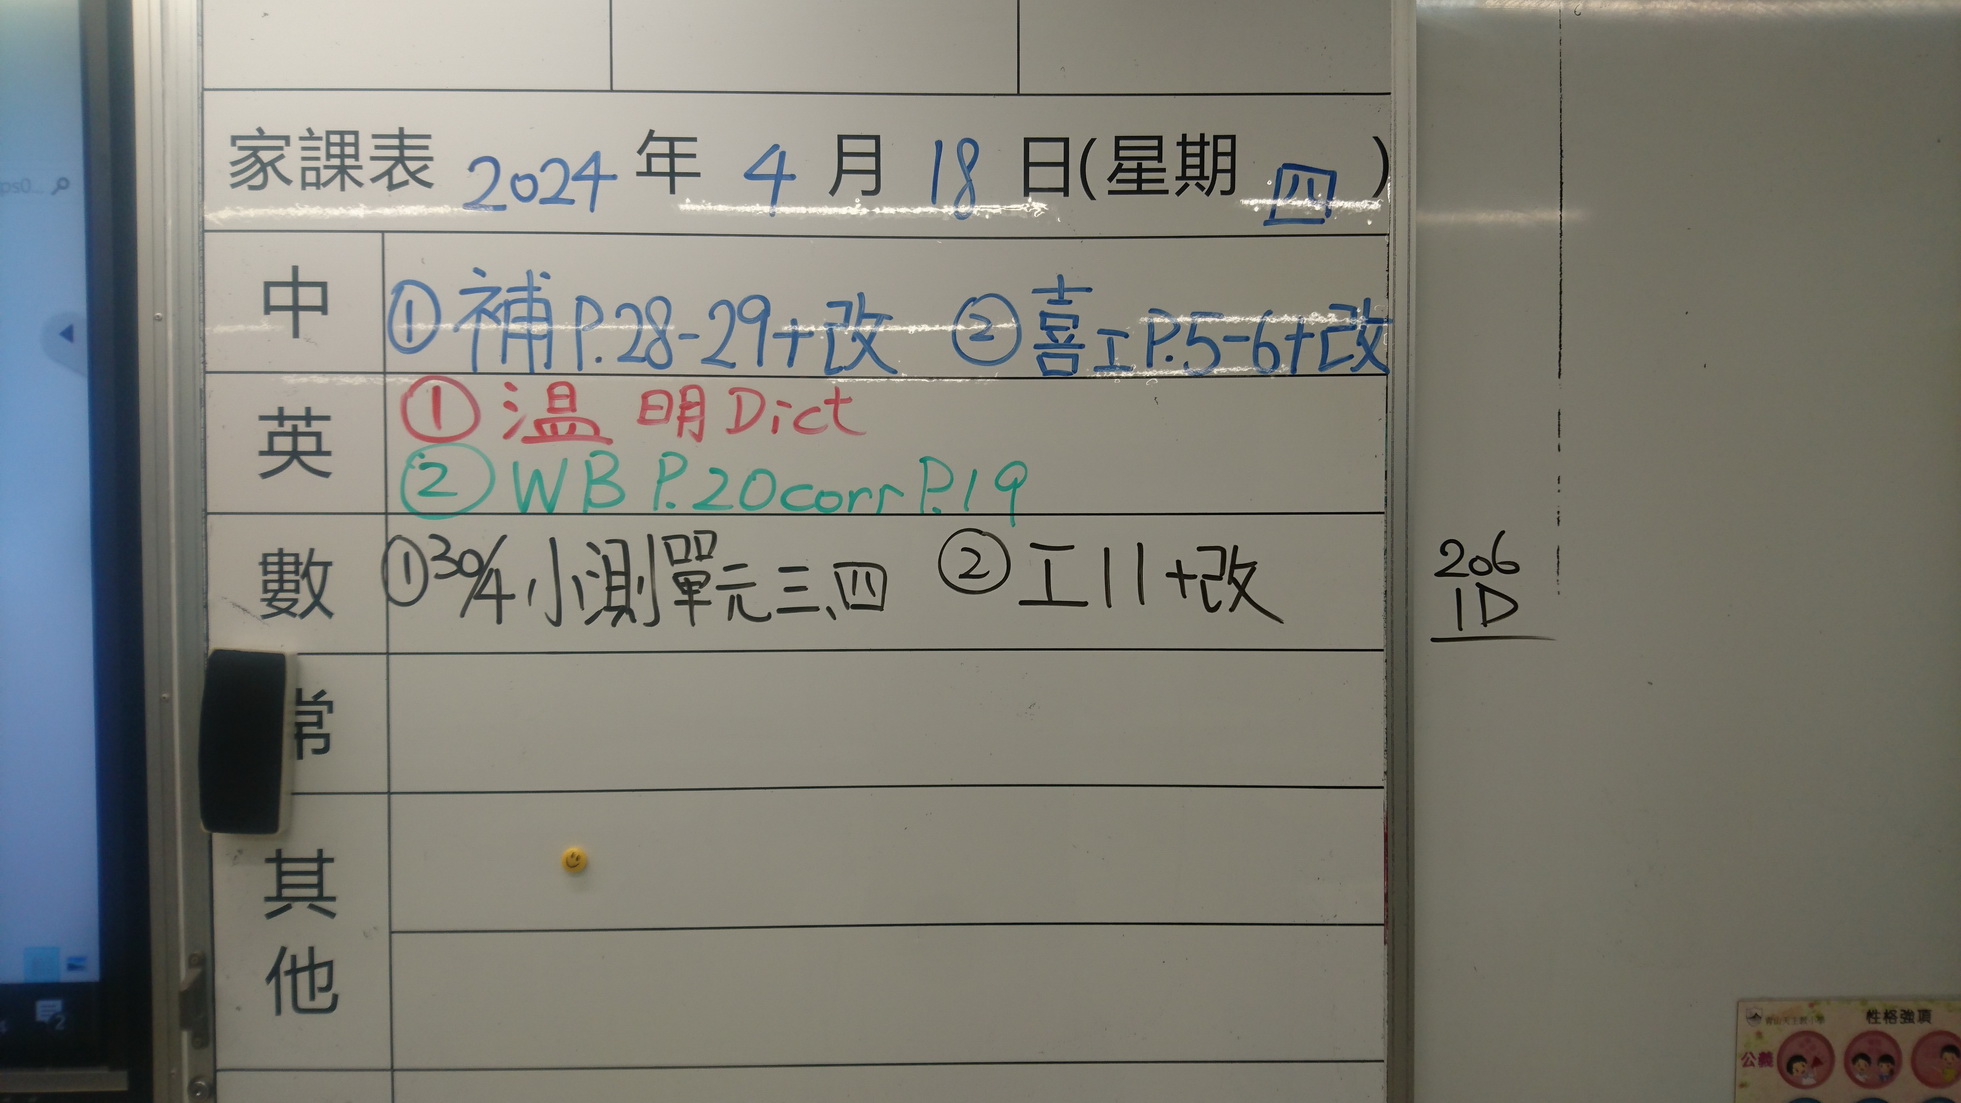 家課表 2024 年 4 月 18 日(星期 四 )
中 ①補P.28-29+改 ②喜工P.5-6+改
英 ①溫 明Dict
②WB P.20corr P.19
數 ①30/4小測單元三、四 ②工11+改
206
1D
常
其他
性格強項
公義